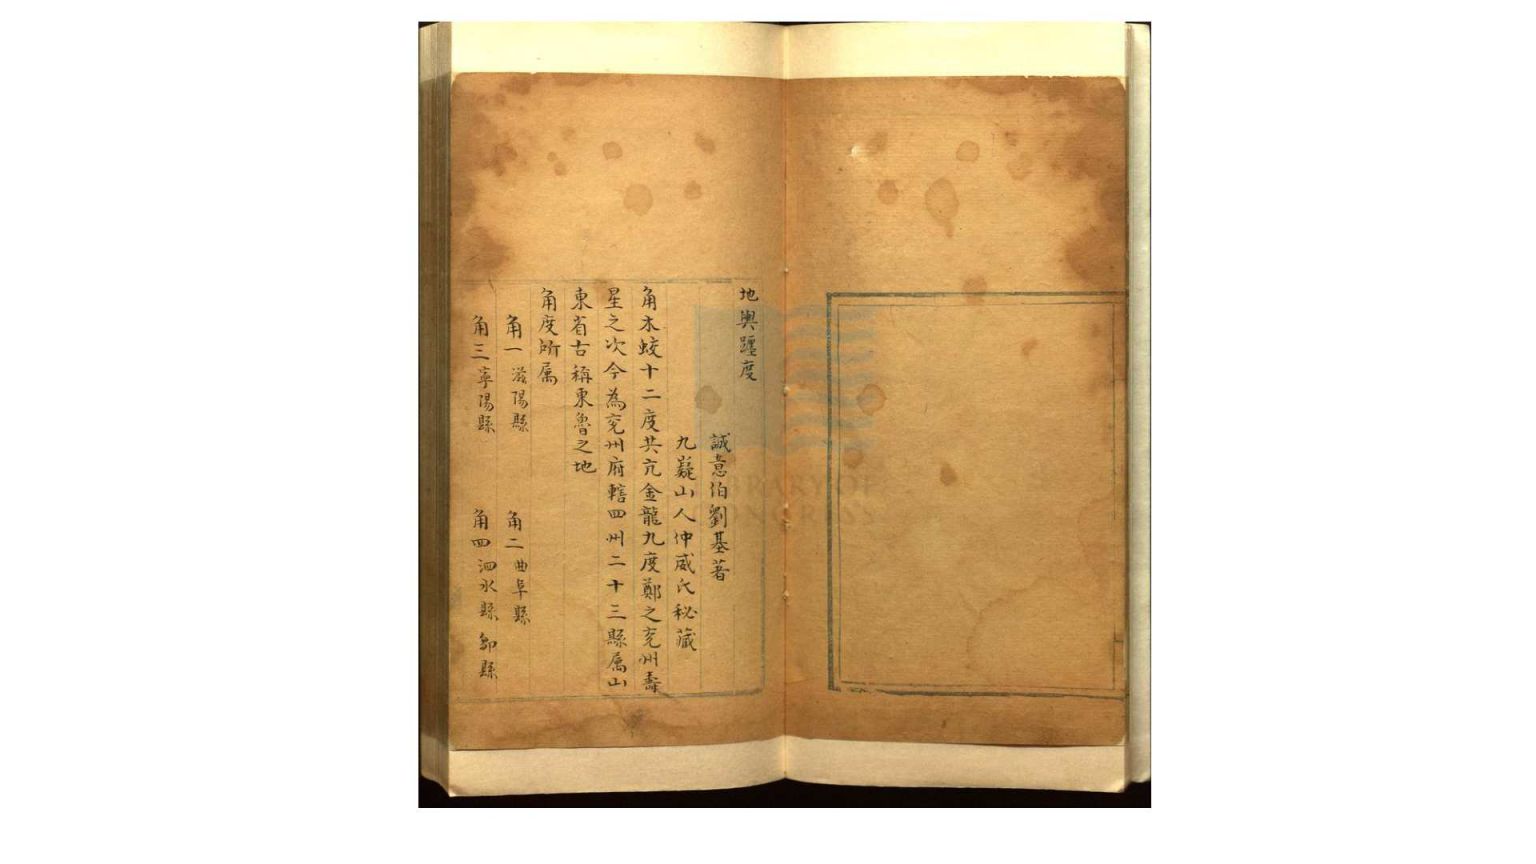 地輿躔度
誠意伯劉基著
九嶷山人仲威氏秘藏
角木蛟十二度共亢金龍九度鄭之兗州壽
星之次今為兗州府轄四州二十三縣属山
東省古稱東魯之地
角度所属
角一 滋陽縣 角二 曲阜縣
角三 寧陽縣 角四 泗水縣 鄒縣
LIBRARY OF
CONGRESS